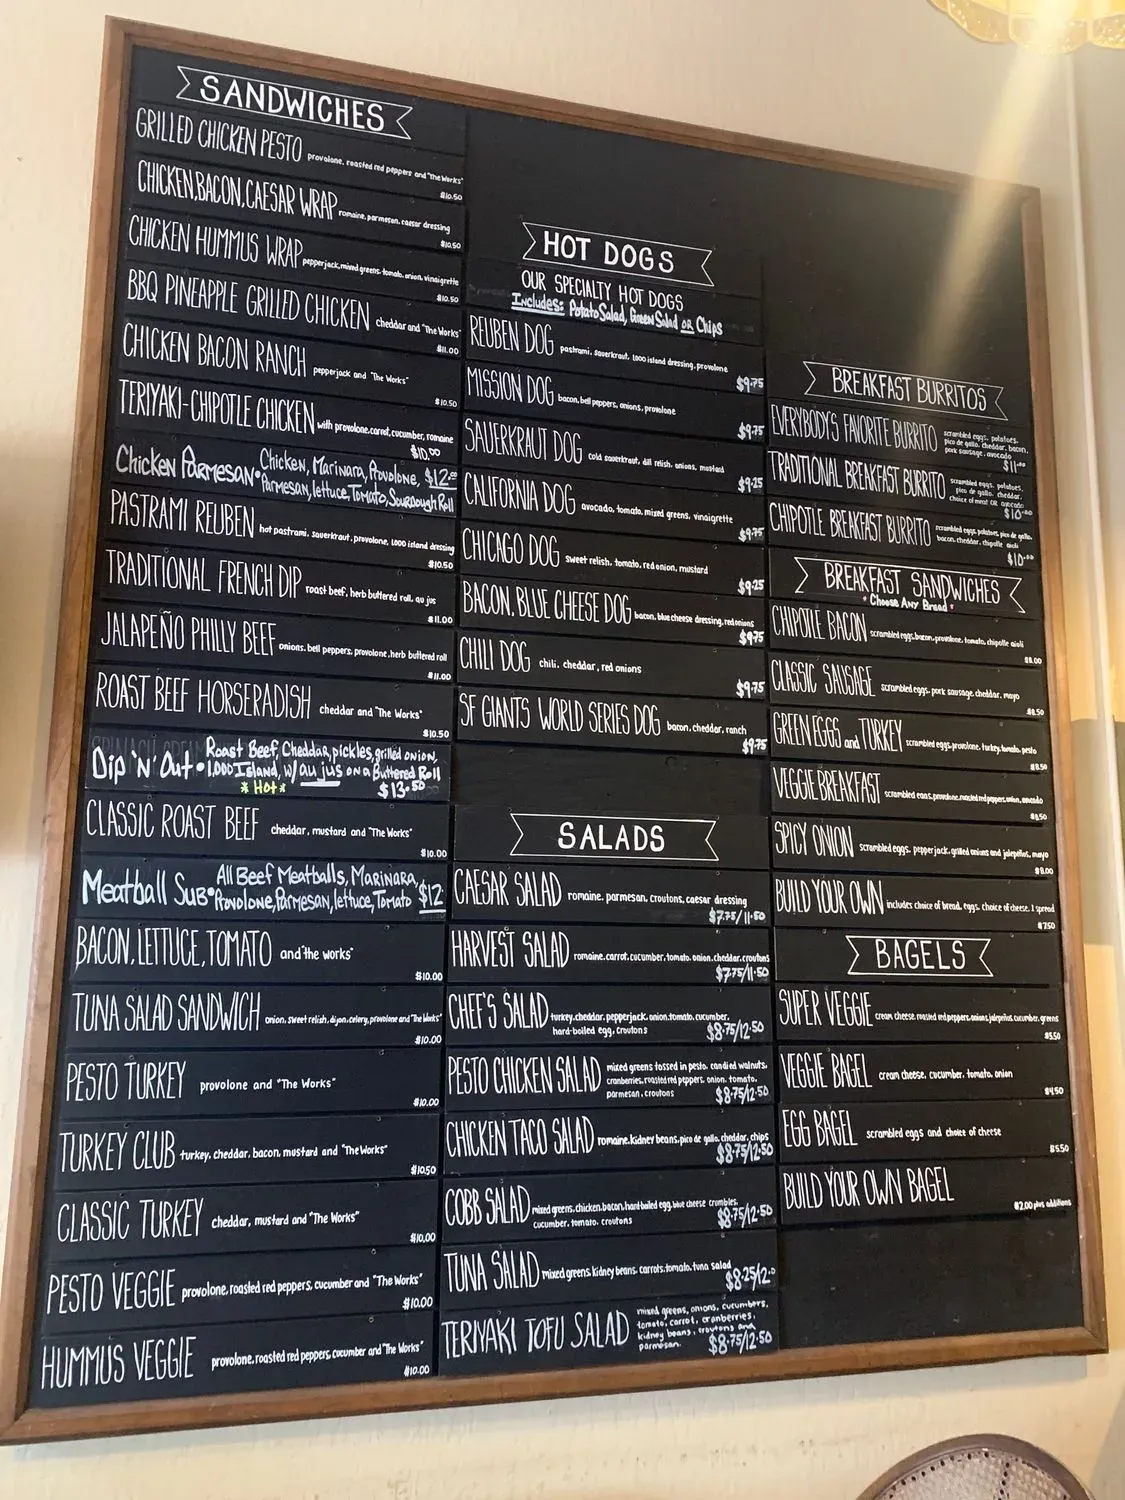 SANDWICHES
GRILLED CHICKEN PESTO provolone, roasted red peppers and "The Works"
$10.50
CHICKEN, BACON, CAESAR WRAP romaine, parmesan, caesar dressing
$10.50
CHICKEN HUMMUS WRAP pepperjack, mixed greens, tomato, onion, vinaigrette
$10.50
BBQ PINEAPPLE GRILLED CHICKEN cheddar and "The Works"
$11.00
CHICKEN BACON RANCH pepperjack and "The Works"
$10.50
TERIYAKI-CHIPOTLE CHICKEN with provolone, carrot, cucumber, romaine
$10.00
Chicken Parmesan • Chicken, Marinara, Provolone, $12.00
Parmesan, lettuce, Tomato, Sourdough Roll
PASTRAMI REUBEN hot pastrami, sauerkraut, provolone, 1,000 island dressing
$10.50
TRADITIONAL FRENCH DIP roast beef, herb buttered roll, au jus
$11.00
JALAPEÑO PHILLY BEEF onions, bell peppers, provolone, herb buttered roll
$11.00
ROAST BEEF HORSERADISH cheddar and "The Works"
$10.50
Dip 'N' Out • Roast Beef, Cheddar, pickles, grilled onion,
1,000 Island, w/ au jus on a Buttered Roll
* Hot * $13.50
CLASSIC ROAST BEEF cheddar, mustard and "The Works"
$10.00
Meatball Sub • All Beef Meatballs, Marinara,
Provolone, Parmesan, lettuce, Tomato $12
BACON, LETTUCE, TOMATO and "the works"
$10.00
TUNA SALAD SANDWICH onion, sweet relish, dijon, celery, provolone and "The Works"
$10.00
PESTO TURKEY provolone and "The Works"
$10.00
TURKEY CLUB turkey, cheddar, bacon, mustard and "The Works"
$10.50
CLASSIC TURKEY cheddar, mustard and "The Works"
$10.00
PESTO VEGGIE provolone, roasted red peppers, cucumber and "The Works"
$10.00
HUMMUS VEGGIE provolone, roasted red peppers, cucumber and "The Works"
$10.00
HOT DOGS
OUR SPECIALTY HOT DOGS
Includes: Potato Salad, Green Salad OR Chips
REUBEN DOG pastrami, sauerkraut, 1,000 island dressing, provolone
$9.75
MISSION DOG bacon, bell peppers, onions, provolone
$9.75
SAUERKRAUT DOG cold sauerkraut, dill relish, onions, mustard
$9.25
CALIFORNIA DOG avocado, tomato, mixed greens, vinaigrette
$9.75
CHICAGO DOG sweet relish, tomato, red onion, mustard
$9.25
BACON, BLUE CHEESE DOG bacon, blue cheese dressing, red onions
$9.75
CHILI DOG chili, cheddar, red onions
$9.75
SF GIANTS WORLD SERIES DOG bacon, cheddar, ranch
$9.75
SALADS
CAESAR SALAD romaine, parmesan, croutons, caesar dressing
$7.75/11.50
HARVEST SALAD romaine, carrot, cucumber, tomato, onion, cheddar, croutons
$7.75/11.50
CHEF'S SALAD turkey, cheddar, pepperjack, onion, tomato, cucumber,
hard-boiled egg, croutons $8.75/12.50
PESTO CHICKEN SALAD mixed greens tossed in pesto, candied walnuts,
cranberries, roasted red peppers, onion, tomato,
parmesan, croutons $8.75/12.50
CHICKEN TACO SALAD romaine, kidney beans, pico de gallo, cheddar, chips
$8.75/12.50
COBB SALAD mixed greens, chicken, bacon, hard-boiled egg, blue cheese crumbles,
cucumber, tomato, croutons $8.75/12.50
TUNA SALAD mixed greens, kidney beans, carrots, tomato, tuna salad
$8.25/12.0
TERIYAKI TOFU SALAD mixed greens, onions, cucumbers,
tomato, carrot, cranberries,
kidney beans, croutons and
parmesan. $8.75/12.50
BREAKFAST BURRITOS
EVERYBODY'S FAVORITE BURRITO scrambled eggs, potatoes,
pico de gallo, cheddar, bacon,
pork sausage, avocado
$11.00
TRADITIONAL BREAKFAST BURRITO scrambled eggs, potatoes,
pico de gallo, cheddar,
choice of meat OR avocado
$10.00
CHIPOTLE BREAKFAST BURRITO scrambled eggs, potatoes, pico de gallo,
bacon, cheddar, chipotle aioli
$10.00
BREAKFAST SANDWICHES
• Choose Any Bread •
CHIPOTLE BACON scrambled eggs, bacon, provolone, tomato, chipotle aioli
$8.00
CLASSIC SAUSAGE scrambled eggs, pork sausage, cheddar, mayo
$8.50
GREEN EGGS and TURKEY scrambled eggs, provolone, turkey, tomato, pesto
$8.50
VEGGIE BREAKFAST scrambled eggs, provolone, roasted red peppers, onion, avocado
$8.50
SPICY ONION scrambled eggs, pepperjack, grilled onions and jalepeños, mayo
$8.00
BUILD YOUR OWN includes choice of bread, eggs, choice of cheese, 1 spread
$7.50
BAGELS
SUPER VEGGIE cream cheese, roasted red peppers, onions, jalepeños, cucumber, greens
$5.50
VEGGIE BAGEL cream cheese, cucumber, tomato, onion
$4.50
EGG BAGEL scrambled eggs and choice of cheese
$5.50
BUILD YOUR OWN BAGEL
$2.00 plus additions